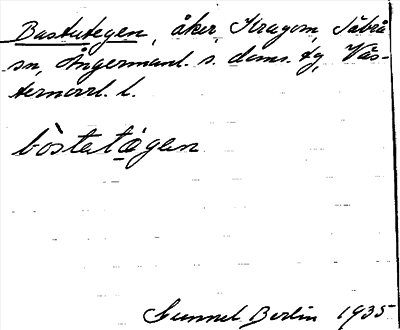 Bastutegen, åker, Kragom, Säbrå
sn, Ångermanl. s. doms. tg, Väs-
ternorrl. l.
bòstetǝ̀gen
Gunnel Berlin 1935